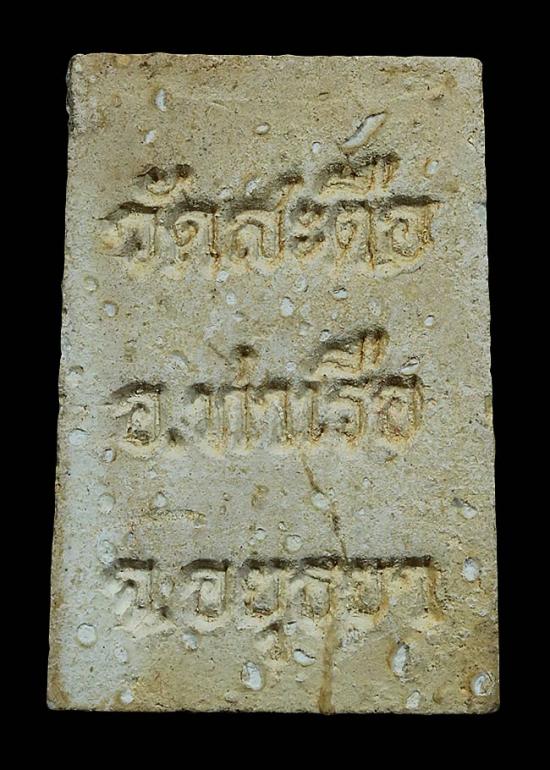 วัดสะตือ
อ.ท่าเรือ
จ.อยุธยา